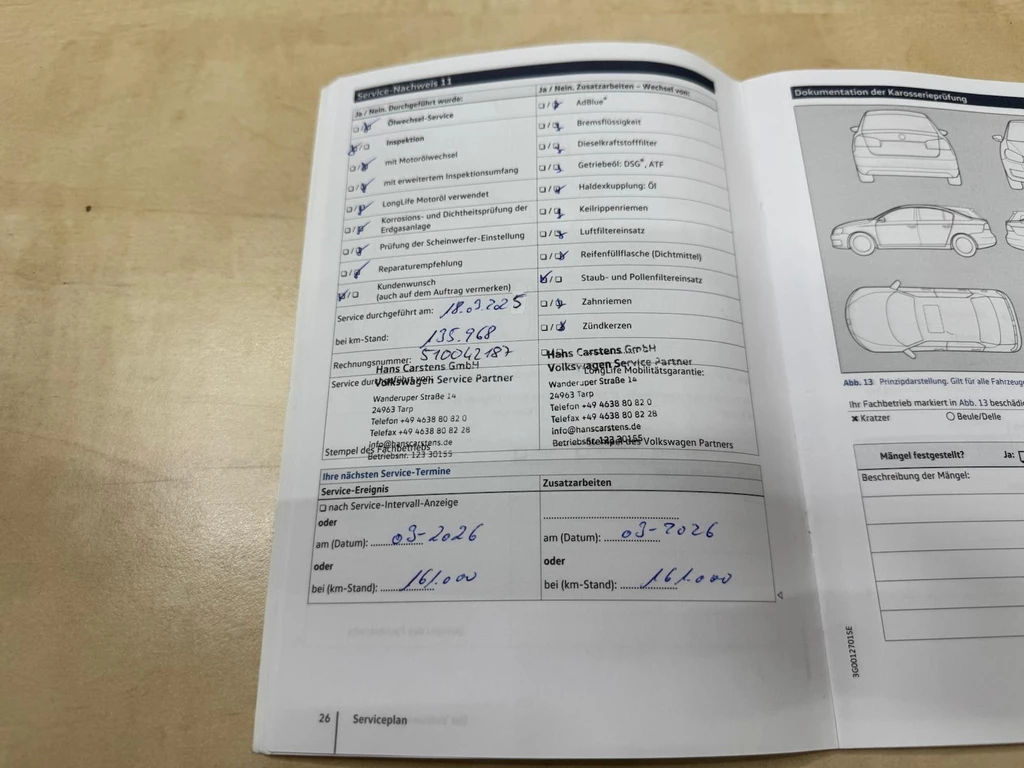 Service-Nachweis 11
Ja / Nein. Durchgeführt wurde:
Ölwechsel-Service
Inspektion
mit Motorölwechsel
mit erweitertem Inspektionsumfang
LongLife Motoröl verwendet
Korrosions- und Dichtheitsprüfung der
Erdgasanlage
Prüfung der Scheinwerfer-Einstellung
Reparaturempfehlung
Kundenwunsch
(auch auf dem Auftrag vermerken)
Service durchgeführt am: 18.03.2025
bei km-Stand: 135.968
Rechnungsnummer: 510042187
Hans Carstens GmbH
Volkswagen Service Partner
Wanderuper Straße 14
24963 Tarp
Telefon +49 4638 80 82 0
Telefax +49 4638 80 82 28
info@hanscarstens.de
Stempel des Fachbetriebs
Betriebsnr. 123 30155
Ja / Nein. Zusatzarbeiten – Wechsel von:
AdBlue®
Bremsflüssigkeit
Dieselkraftstofffilter
Getriebeöl: DSG®, ATF
Haldexkupplung: Öl
Keilrippenriemen
Luftfiltereinsatz
Reifenfüllflasche (Dichtmittel)
Staub- und Pollenfiltereinsatz
Zahnriemen
Zündkerzen
Hans Carstens GmbH
Volkswagen Service Partner
LongLife Mobilitätsgarantie:
Wanderuper Straße 14
24963 Tarp
Telefon +49 4638 80 82 0
Telefax +49 4638 80 82 28
info@hanscarstens.de
Betriebsnr. 123 30155
Stempel des Volkswagen Partners
Ihre nächsten Service-Termine
Service-Ereignis
nach Service-Intervall-Anzeige
oder
am (Datum): 03-2026
oder
bei (km-Stand): 161.000
Zusatzarbeiten
am (Datum): 03-2026
oder
bei (km-Stand): 161.000
26 Serviceplan
Dokumentation der Karosserieprüfung
Abb. 13 Prinzipdarstellung. Gilt für alle
Ihr Fachbetrieb markiert in Abb. 13
Kratzer Beule/Delle
Mängel festgestellt? Ja:
Beschreibung der Mängel:
3G0012701SE